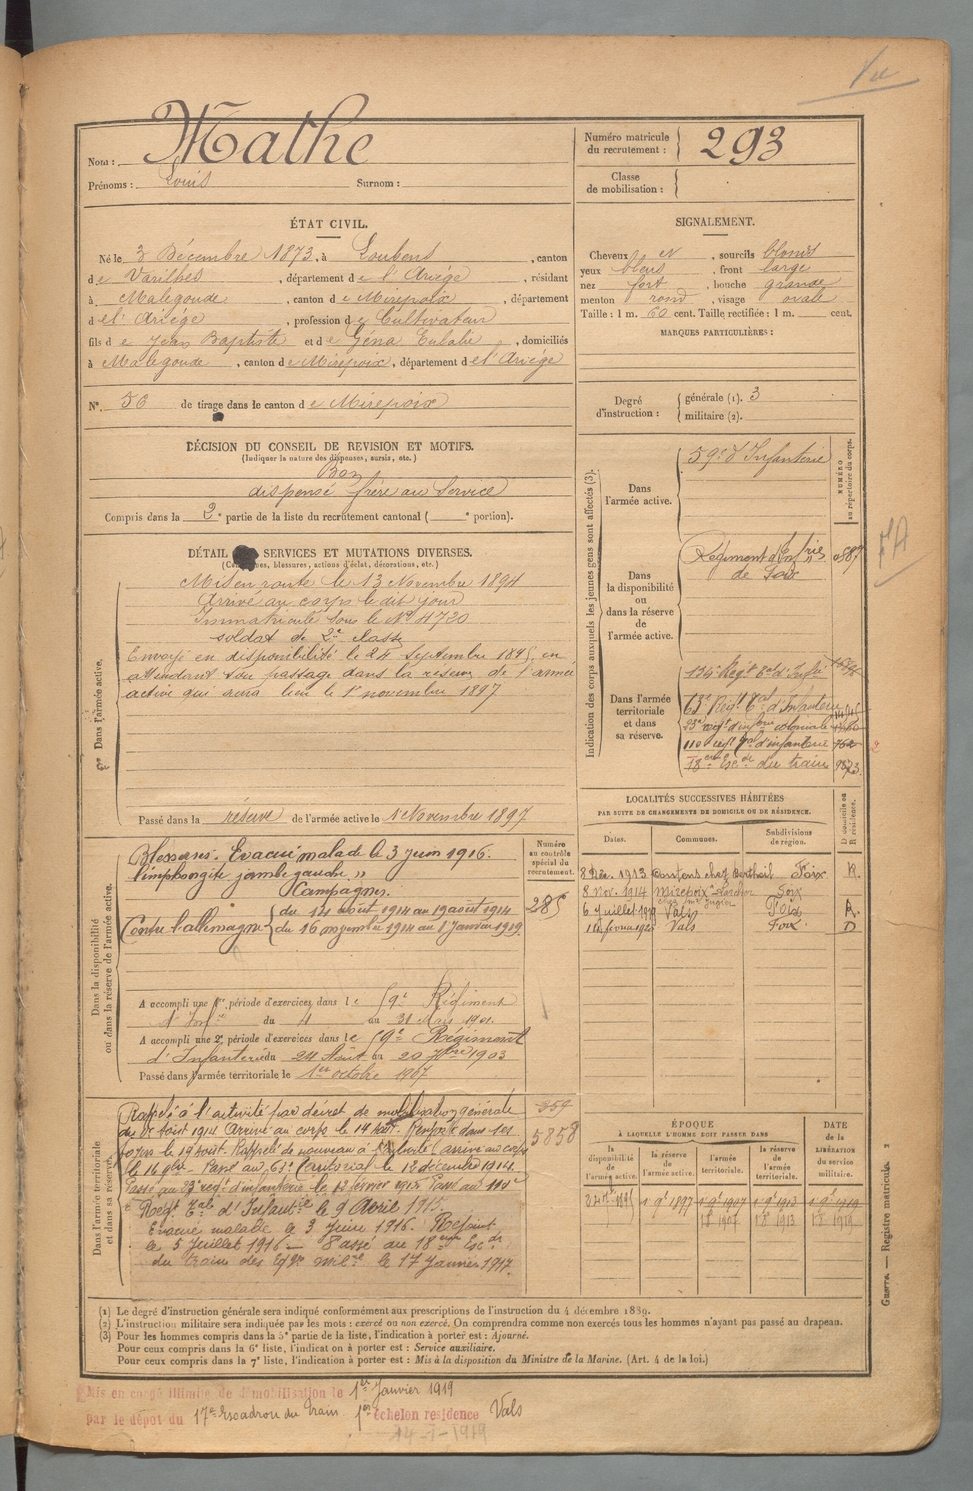 Nom : Mathe
Prénoms : Louis Surnom :
Numéro matricule du recrutement : 293
Classe de mobilisation :
ÉTAT CIVIL.
Né le 3 Décembre 1873, à Loubens, canton
de Varilhes, département de l'Ariége, résidant
à Malegoude, canton de Mirepoix, département
de l'Ariége, profession de Cultivateur
fils de Jean Baptiste et de Géna Eulalie, domiciliés
à Malegoude, canton de Mirepoix, département de l'Ariége
N° 56 de tirage dans le canton de Mirepoix
SIGNALEMENT.
Cheveux et, sourcils blonds
yeux bleus, front large
nez fort, bouche grande
menton rond, visage ovale
Taille : 1 m. 60 cent. Taille rectifiée : 1 m. cent.
MARQUES PARTICULIÈRES :
Degré d'instruction : générale (1). 3
militaire (2).
DÉCISION DU CONSEIL DE REVISION ET MOTIFS.
(Indiquer la nature des dispenses, sursis, etc.)
Bon
dispensé frère au Service
Compris dans la 2e partie de la liste du recrutement cantonal ( e portion).
DÉTAIL SERVICES ET MUTATIONS DIVERSES.
(Campagnes, blessures, actions d'éclat, décorations, etc.)
Dans l'armée active.
Mis en route le 13 Novembre 1894
Arrivé au corps le dit jour
Immatriculé sous le N° 4720
soldat de 2e classe
Envoyé en disponibilité le 24 Septembre 1895, en
attendant son passage dans la réserve de l'armée
active qui aura lieu le 1er novembre 1897
Passé dans la réserve de l'armée active le 1er Novembre 1897
Dans la disponibilité ou dans la réserve de l'armée active.
Numéro au contrôle spécial du recrutement.
285
Blessures. Evacué malade le 3 Juin 1916.
"limphangite jambe gauche"
Campagnes.
Contre l'allemagne du 14 août 1914 au 19 août 1914
du 16 novembre 1914 au 1 Janvier 1919
A accompli une 1re période d'exercices dans le 59e Régiment
d'Infie du 4 au 31 Mars 1901.
A accompli une 2e période d'exercices dans le 59e Régiment
d'Infanterie du 24 Août au 20 7bre 1903
Passé dans l'armée territoriale le 1er octobre 1907
Dans l'armée territoriale et dans sa réserve.
359
5858
Rappelé à l'activité par décret de mobilisation générale
du 1er Aout 1914 Arrivé au corps le 14 août. Renvoyé dans ses
foyers le 19 août. Rappelé de nouveau à l'activité (arrivé au corps
le 16 9bre. Passé au 63e Territorial le 12 décembre 1914.
Passé au 23e regt d'infanterie le 12 février 1915 Passé au 110e
Regt Tal d'Infantie le 9 Avril 1915.
Evacué malade le 3 Juin 1916. Rejoint
le 5 Juillet 1916 — Passé au 18eme Escon
du train des Eqges milres le 17 Janvier 1917.
Indication des corps auxquels les jeunes gens sont affectés (3).
NUMÉRO au répertoire du corps.
Dans l'armée active.
59e d'Infanterie
Dans la disponibilité ou dans la réserve de l'armée active.
Régiment d'Infrie
de Foix
Dans l'armée territoriale et dans sa réserve.
134e Regt tal d'Infie
63e Regt tal d'Infanterie
23e regt d'infrie coloniale
110e regt tal d'infanterie
18eme Escon du train 9823
LOCALITÉS SUCCESSIVES HABITÉES
PAR SUITE DE CHANGEMENTS DE DOMICILE OU DE RÉSIDENCE.
Dates. Communes. Subdivisions de région. D domicile ou R résidence.
8 Déc. 1913 chez Bertheil Foix R.
8 Nov. 1914 Mirepoix Foix
6 Juillet 1919 Vals Foix R.
Vals Foix D
ÉPOQUE
À LAQUELLE L'HOMME DOIT PASSER DANS
la disponibilité de l'armée active.
la réserve de l'armée active.
l'armée territoriale.
la réserve de l'armée territoriale.
DATE de la LIBÉRATION du service militaire.
24 7bre 1895 1er 9e 1897 1er 9e 1907 1er 9e 1913 1er 9e 1919
1 8 1907 1 8 1913 1 8 1919
(1) Le degré d'instruction générale sera indiqué conformément aux prescriptions de l'instruction du 4 décembre 1889.
(2) L'instruction militaire sera indiquée par les mots : exercé ou non exercé. On comprendra comme non exercés tous les hommes n'ayant pas passé au drapeau.
(3) Pour les hommes compris dans la 5e partie de la liste, l'indication à porter est : Ajourné.
Pour ceux compris dans la 6e liste, l'indication à porter est : Service auxiliaire.
Pour ceux compris dans la 7e liste, l'indication à porter est : Mis à la disposition du Ministre de la Marine. (Art. 4 de la loi.)
Guerre. — Registre matricule. 3
Mis en congé illimité de démobilisation le 1er Janvier 1919
par le dépôt du 17e Escadron du Train 1er échelon residence Vals
14-I-1919